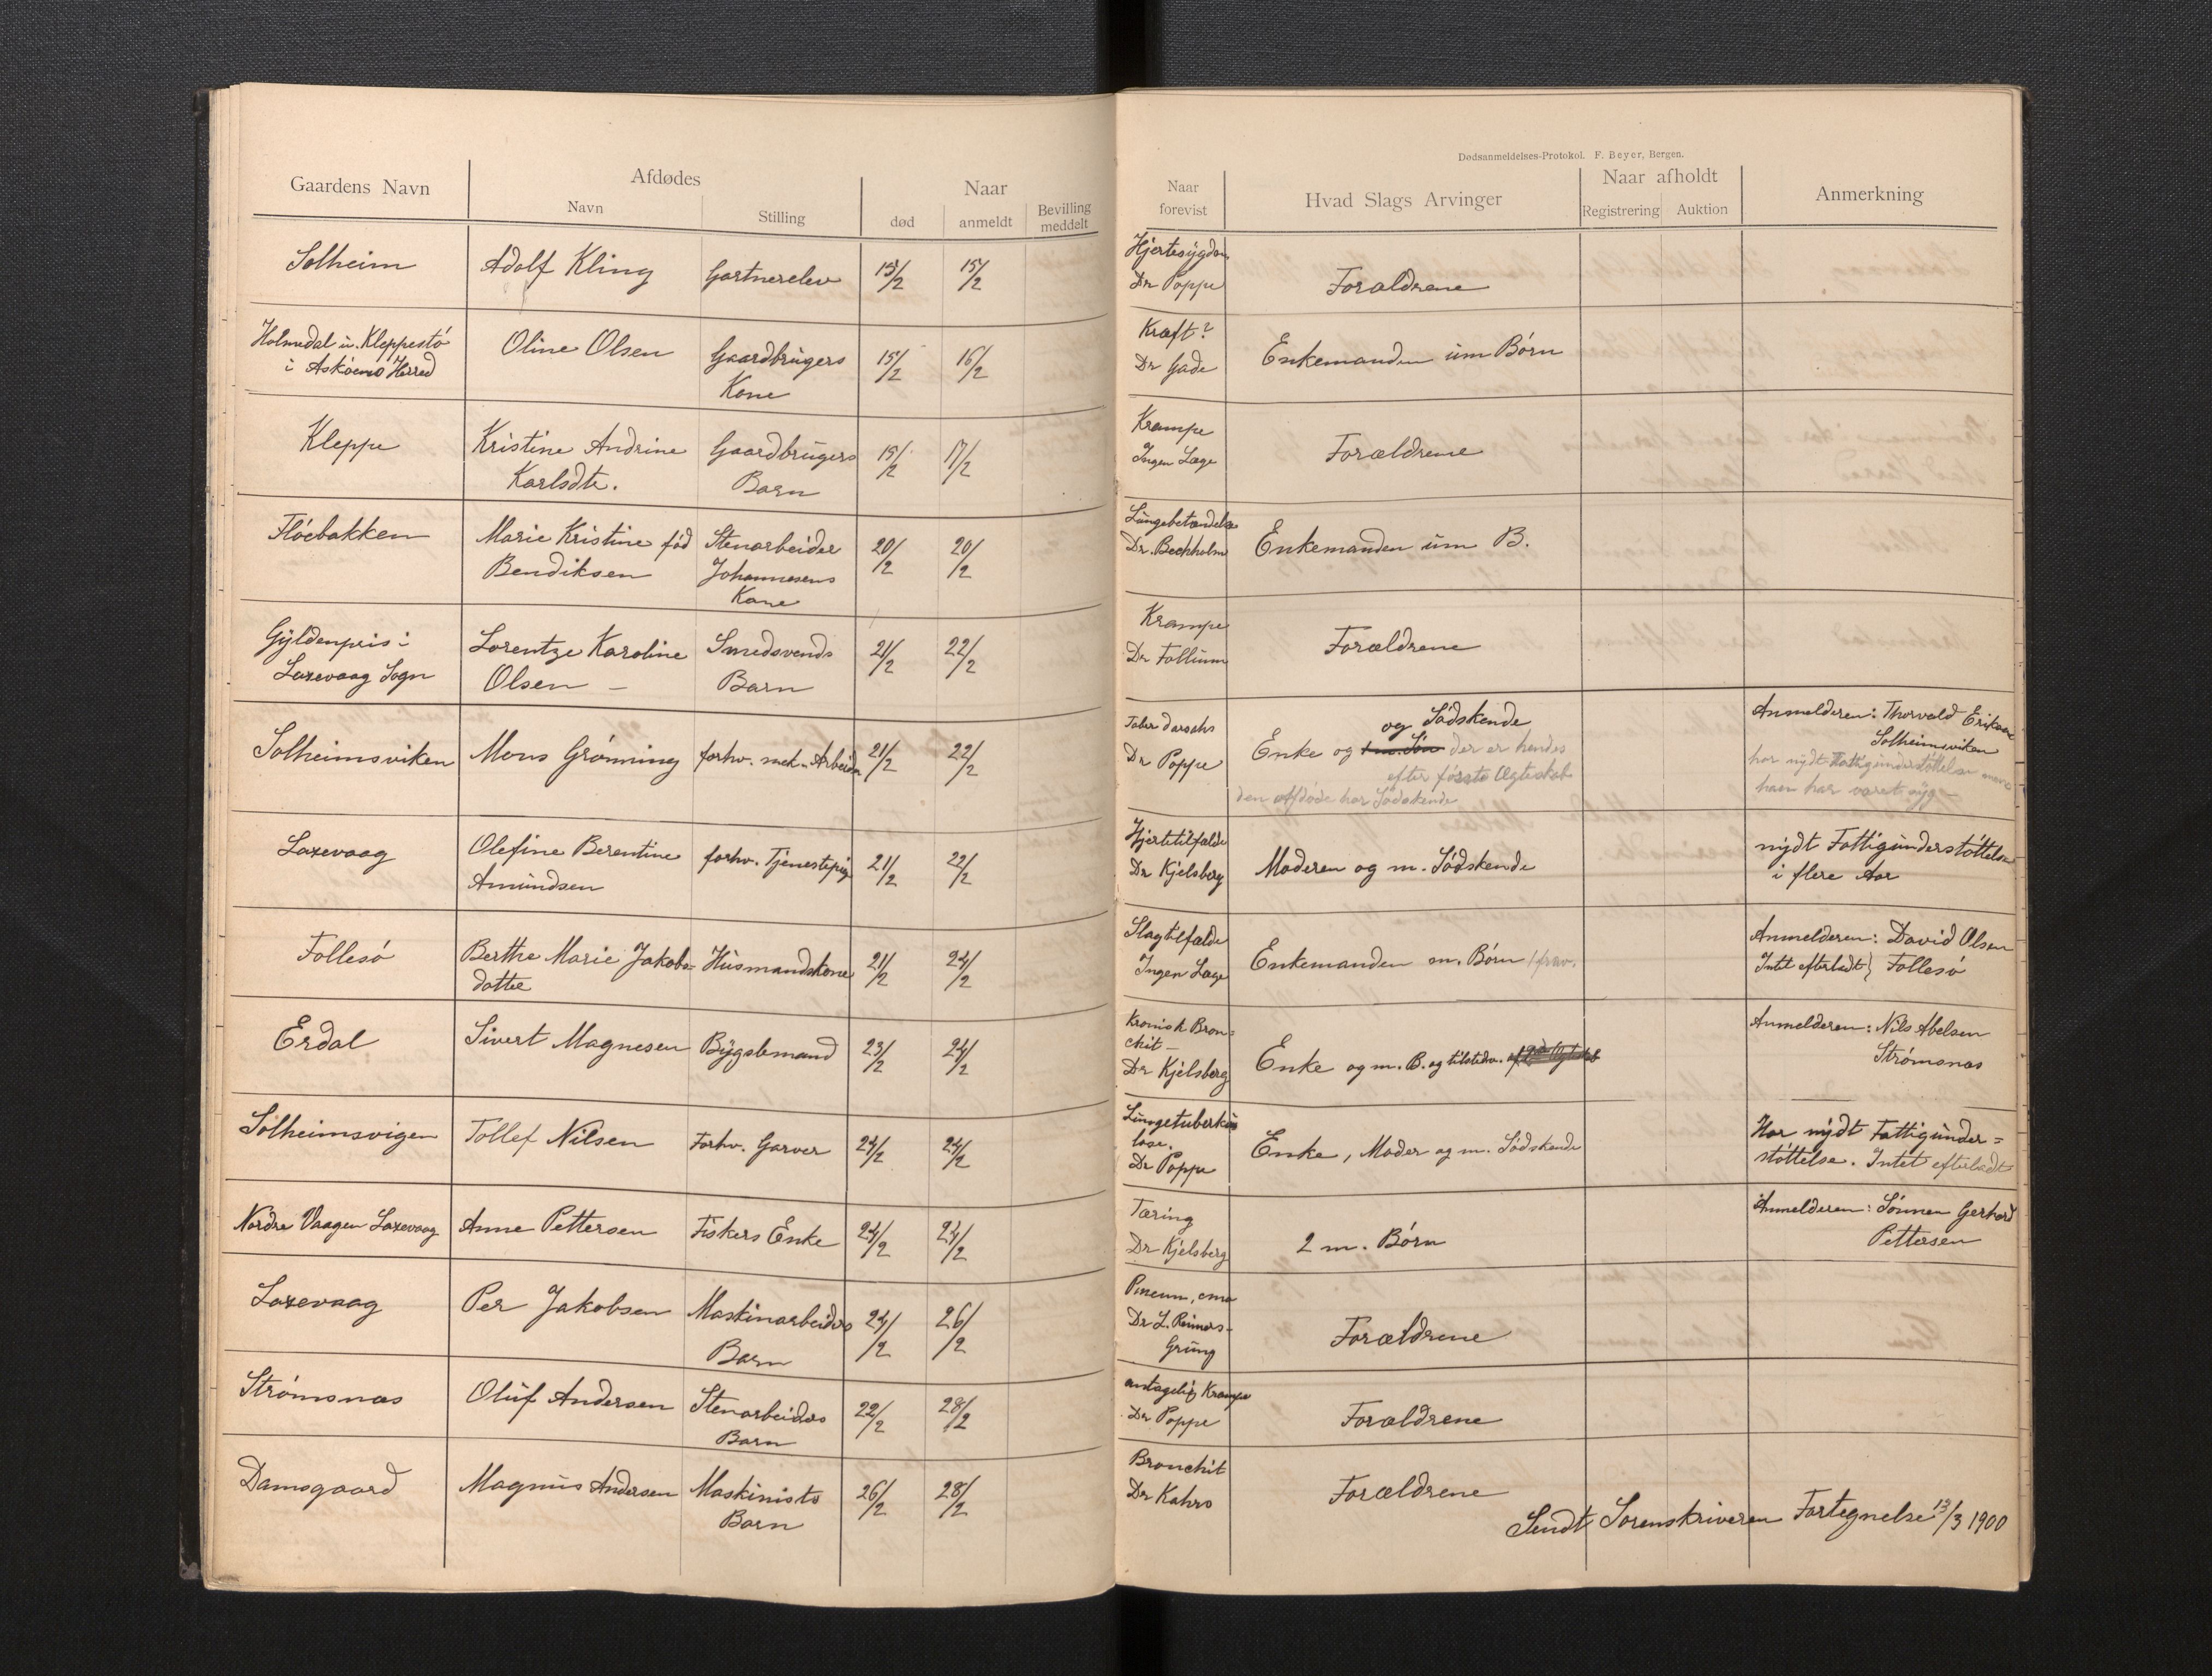 Dødsanmeldelses-Protokol. F. Beyer, Bergen.
Gaardens Navn Afdødes Naar
Navn Stilling død anmeldt Bevilling meddelt
Naar forevist Hvad Slags Arvinger Naar afholdt Anmerkning
Registrering Auktion
Solheim Adolf Kling Gartnerelev 15/2 15/2 Hjertesygdom
Dr Poppe Forældrene
Holmedal u. Kleppestö Oline Olsen Gaardbrugers 15/2 16/2 Kræft? Enkemanden um Börn
i Askøens Herred Kone Dr Gade
Kleppe Kristine Andrine Gaardbrugers 15/2 17/2 Krampe Forældrene
Karlsdtr. Barn Ingen Læge
Flöebakken Marie Kristine fød Stenarbeider 20/2 20/2 Lungebetændelse Enkemanden um B.
Bendiksen Johannesens Dr. Bechholm
Kone
Gyldenpris i Lorentze Karoline Smedsvends 21/2 22/2 Krampe Forældrene
Laxevaag Sogn Olsen – Barn Dr Follum
og Södskende Anmelderen: Thorvald Eriksen
Solheimsviken Mons Grönning forhv. mek. Arbeider 21/2 22/2 Enke og um. Sön der er hendes Solheimsviken
Dr Poppe efter første Ægteskab har nydt Fattigunderstöttelse mens
den afdöde har Södskende han har været syg –
Laxevaag Olefine Berentine forhv. Tjenestepige 21/2 22/2 Hjertetilfælde Moderen og m. Södskende nydt Fattigunderstöttelse
Amundsen Dr Kjelsberg i flere Aar
Follesö Berthe Marie Jakobs= Husmandskone 21/2 24/2 Slagtilfælde Enkemanden m. Börn Anmelderen: David Olsen
datter Ingen Læge Intet efterladt} Follesö
Erdal Sivert Magnesen Bygslemand 23/2 24/2 Kronisk Bron= Anmelderen: Nils Abelsen
chit – Strömsnæs
Dr Kjelsberg Enke og m. B. og tilstedv.
Solheimsvigen Tollef Nilsen Forhv. Garver 24/2 24/2 Lungetuberku Enke, Moder og m. Södskende Har nydt Fattigunder=
lose. støttelse. Intet efterladt
Dr Poppe
Nordre Vaagen Laxevaag Anne Pettersen Fiskers Enke 24/2 24/2 Tæring 2 m. Börn Anmelderen: Sönnen Gerhard
Dr Kjelsberg Pettersen
Laxevaag Per Jakobsen Maskinarbeiders 24/2 26/2 Forældrene
Barn Dr L. Reimers-
Grung
Strömsnæs Oluf Andersen Stenarbeiders 22/2 28/2 antagelig Krampe Forældrene
Barn Dr Poppe
Damsgaard Magnus Andersen Maskinists 26/2 28/2 Bronchit Forældrene
Barn Dr Kahrs
Sendt Sorenskriveren Fortegnelse 13/3 1900